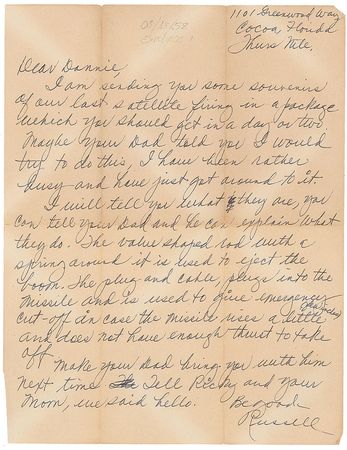 1101 Greenwood Way
Cocoa, Florida
Thurs Nite,
05/15/58
Dear Dannie,
I am sending you some souvenirs
of our last satellite firing in a package
which you should get in a day or two
Maybe your Dad told you I would
try to do this, I have been rather
busy and have just got around to it.
I will tell you what they are, you
can tell your Dad and he can explain what
they do. The valve shaped rod with a
spring around it is used to eject the
boom. The plug and cable, plugs into the
missile and is used to give emergency
cut-off in case the missile rises a little
and does not have enough thrust to take
off.
Make your Dad bring you with him
next time. Tell Ricky and your
Mom, we said hello.
Be good
Russell